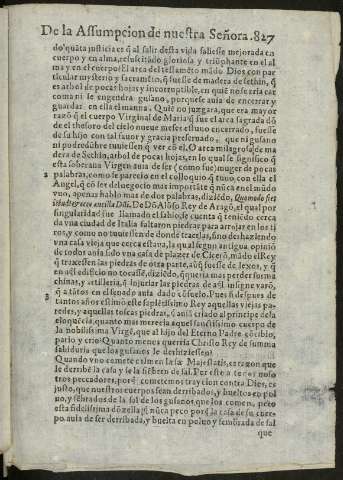 De la Assumpcion de nuestra Señora. 827
do quãta justicia es q̃ al salir desta vida saliesse mejorada en
cuerpo y en alma, resuscitado gloriosa y triũphante en el al
ma y en el cuerpo? El arca del testamẽto mãdo Dios con par
ticular mysterio y sacramẽto, q̃ fuesse de madera de sethin, q̃
es arbol de pocas hojas y incorruptible, en quiẽ no se cria car
coma ni le engendra gusano, porque se auia de encerrar y
guardar en ella el manna. Quiẽ no juzgara, que era mayor
razõ q̃ el cuerpo Virginal de Maria q̃ fue el arca sagrada dõ
de el thesoro del cielo nueue meses estuuo encerrado, fuesse
de su hijo con tal fauor y gracia preseruado, que ni gusano
ni podredũbre tuuiessen q̃ ver cõ el. O arca milagrosa de ma
dera de Sethin, arbol de pocas hojas, en lo qual se significo q̃
esta soberana Virgen auia de ser (como fue) muger de pocas
2 palabras, como se parecio en el colloquio q̃ tuuo, con ella el
Angel, q̃ cõ ser del negocio mas importãte q̃ nũca en el mũdo
vuo, apenas hablo mas de dos palabras, diziẽdo, Quomodo fiet
istud? ecce ancilla Dñi. De Dõ Alõso Rey de Aragõ, el qual por
singularidad fue llamado el sabio, se cuenta q̃ teniẽdo cerca
da vna ciudad de Italia faltaron piedras para arrojar en los ti
ros, y como no tuuiessen de donde traerlas, sino deshaziendo
vna casa vieja que cerca estaua, la qual segun antigua opinió
de todos auia sido vna casa de plazer de Ciceró, mãdo el Rey
q̃ traxessen las piedras de otra parte, aũq̃ fuesse de lexos, y q̃
en aq̃l edificio no tocassẽ, diziẽdo, q̃ queria mas perder su ma
chinas, y artilleria, q̃ injuriar las piedras de aq̃l insigne varõ,
3 q̃ a tãtos en el senado auia dado cõsuelo. Pues si despues de
tantos años estimó este sapiẽtissimo Rey aquellas viejas pa
redes, y aquellas toscas piedras, q̃ auiã criado al principe de la
eloquẽcia, quanto mas mereria aquel sanctissimo cuerpo de
la nobilissima Virgẽ, que al hijo del Eterno Padre cõcibio,
pario y crio? Quanto menos querria Christo Rey de summa
sabiduria que los gusanos le deshiziessen?
Quando vno comete crimen læsæ Majestatis, es razon que
le derriben la casa y se la siẽbren de sal. Por esto a todos noso
tros peccadores, porq̃ cometemos traycion contra Dios, es
justo, que nuestros cuerpos sean derribados, y bueltos en pol
uo, y sẽbrados de la sal de los gusanos que los comen, pero
esta fidelissima dõzella q̃ nũca peco porq̃ la casa de su cuer
po, auia de ser derribada, y buelta en poluo y sembrada de sal
que